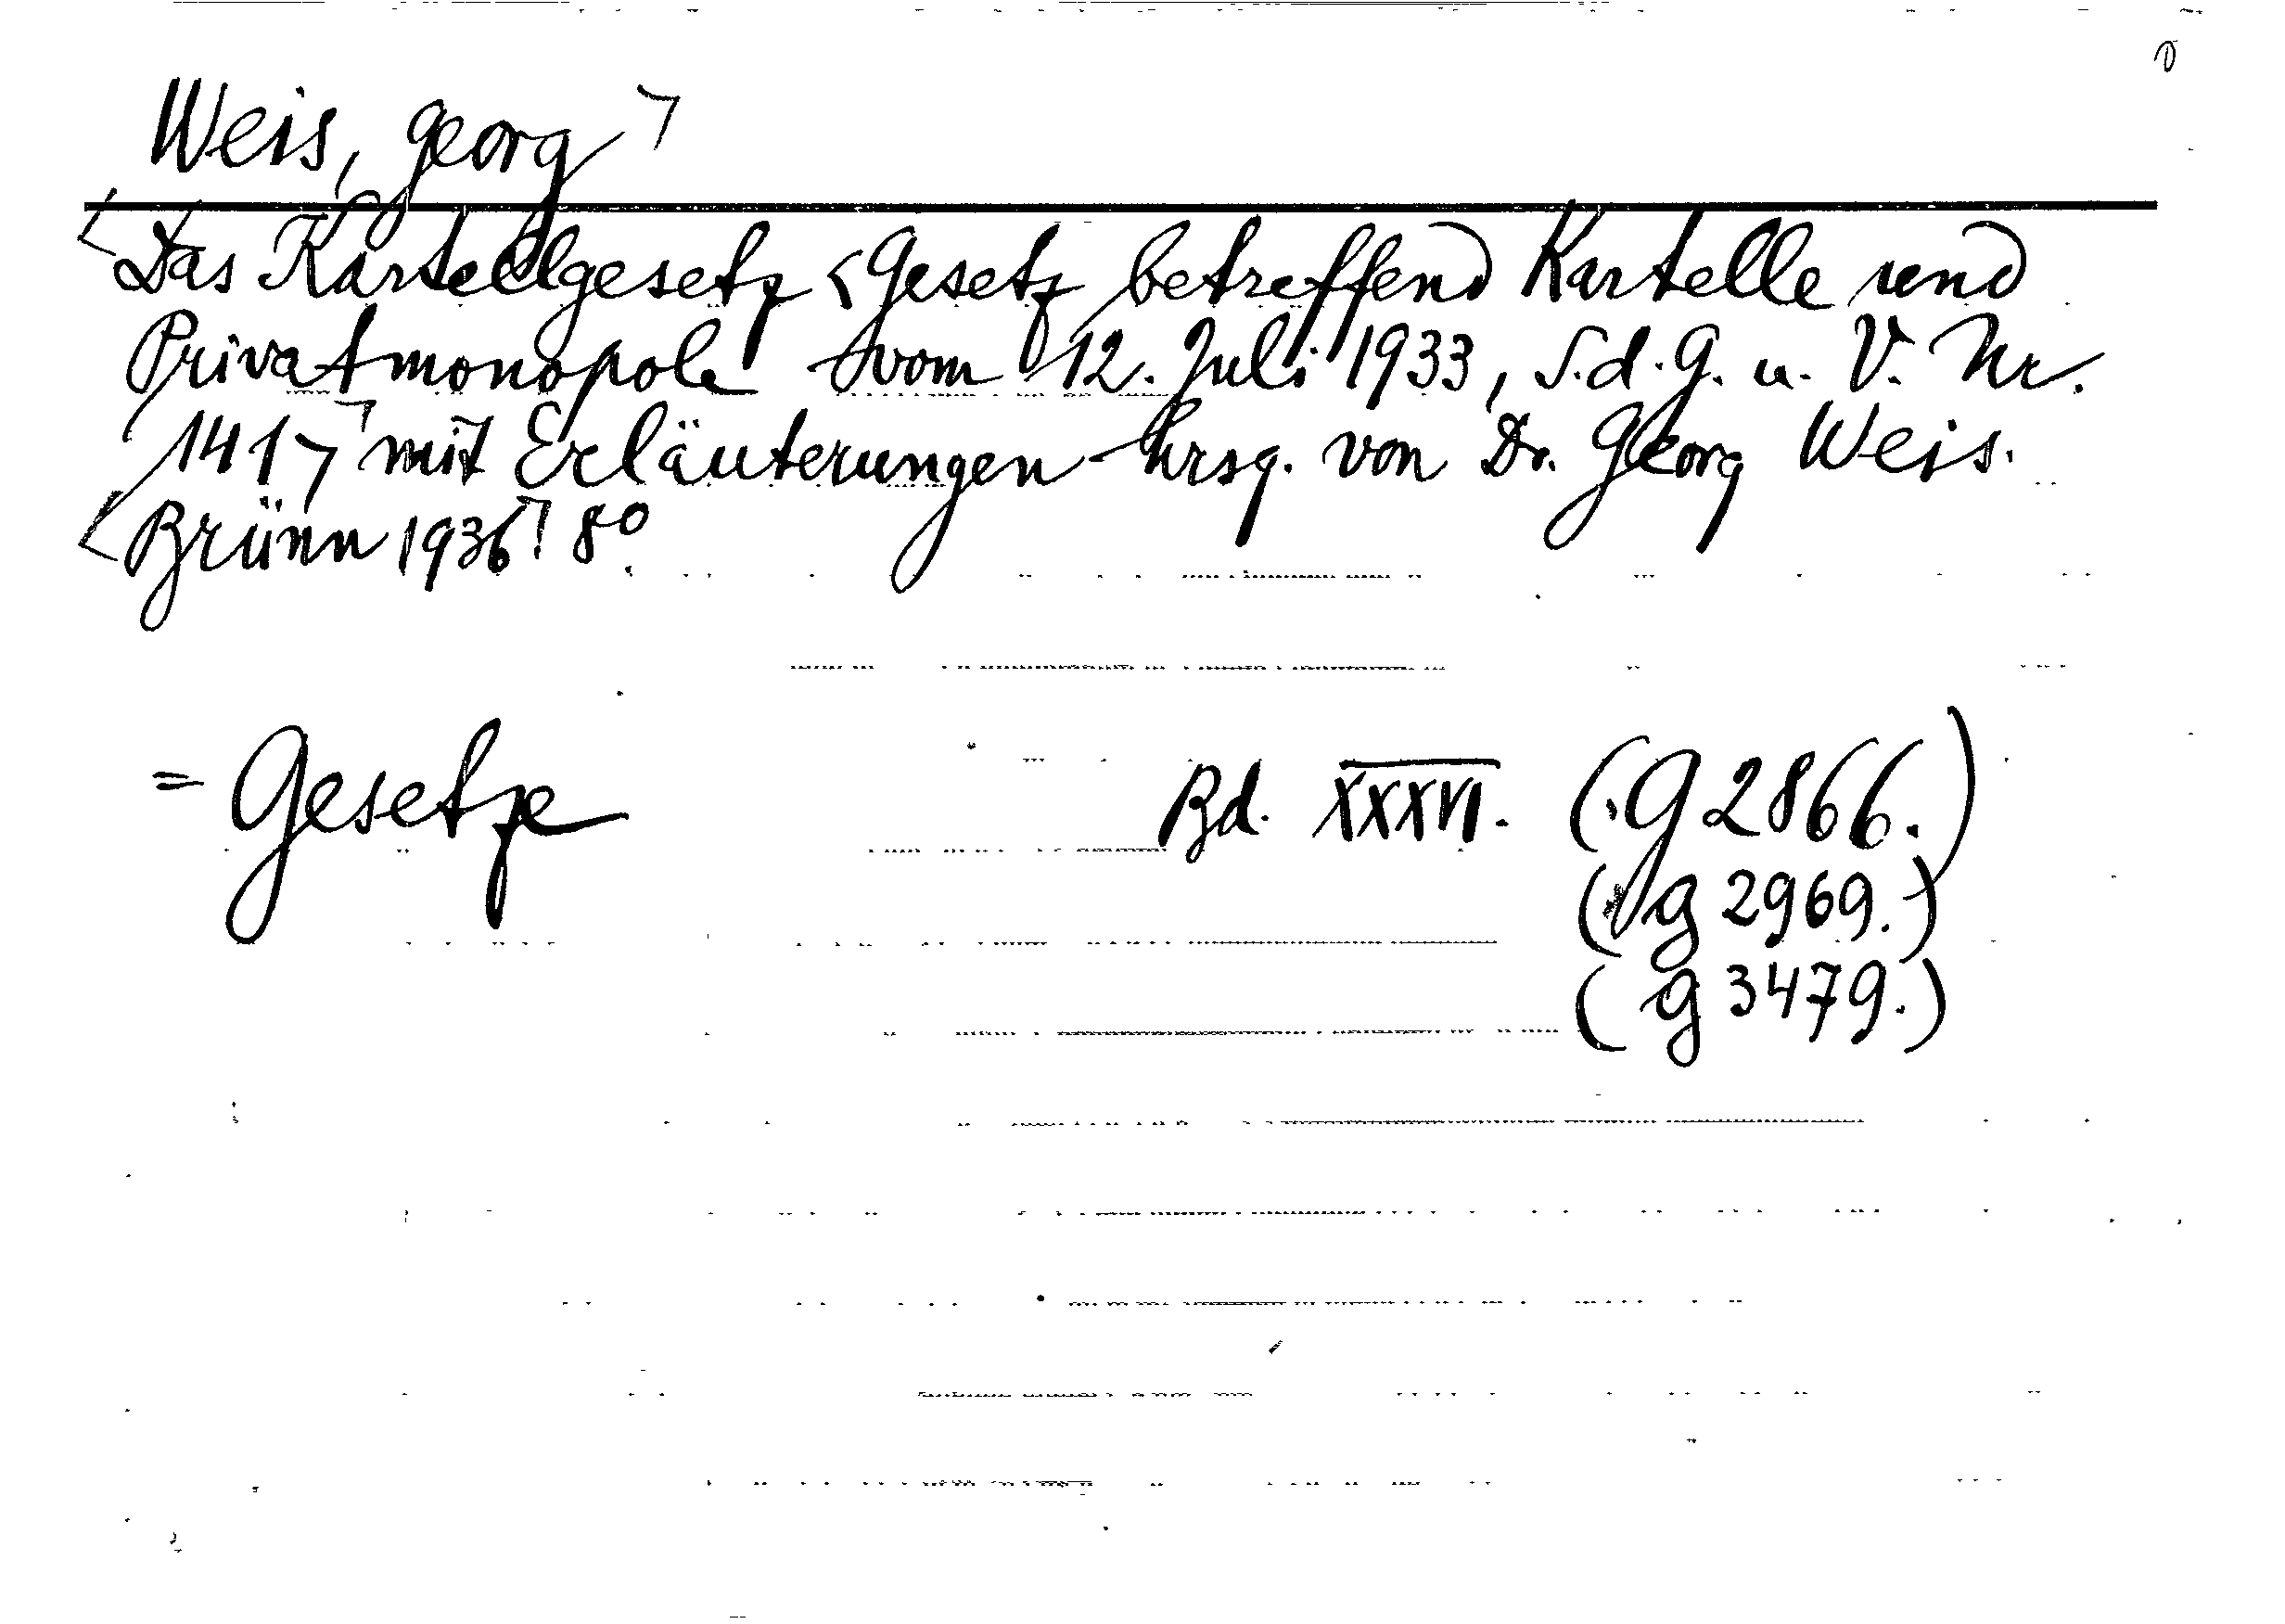 Weis, Georg
Das Kartellgesetz <Gesetz betreffend Kartelle und
Privatmonopole vom 12. Juli 1933, S.d.G. u. V. Nr.
141> mit Erläuterungen hrsg. von Dr. Georg Weis.
Brünn 1936. 8°
= Gesetze Bd. XXXVI. (G 2866.)
(G 2969.)
(G 3479.)